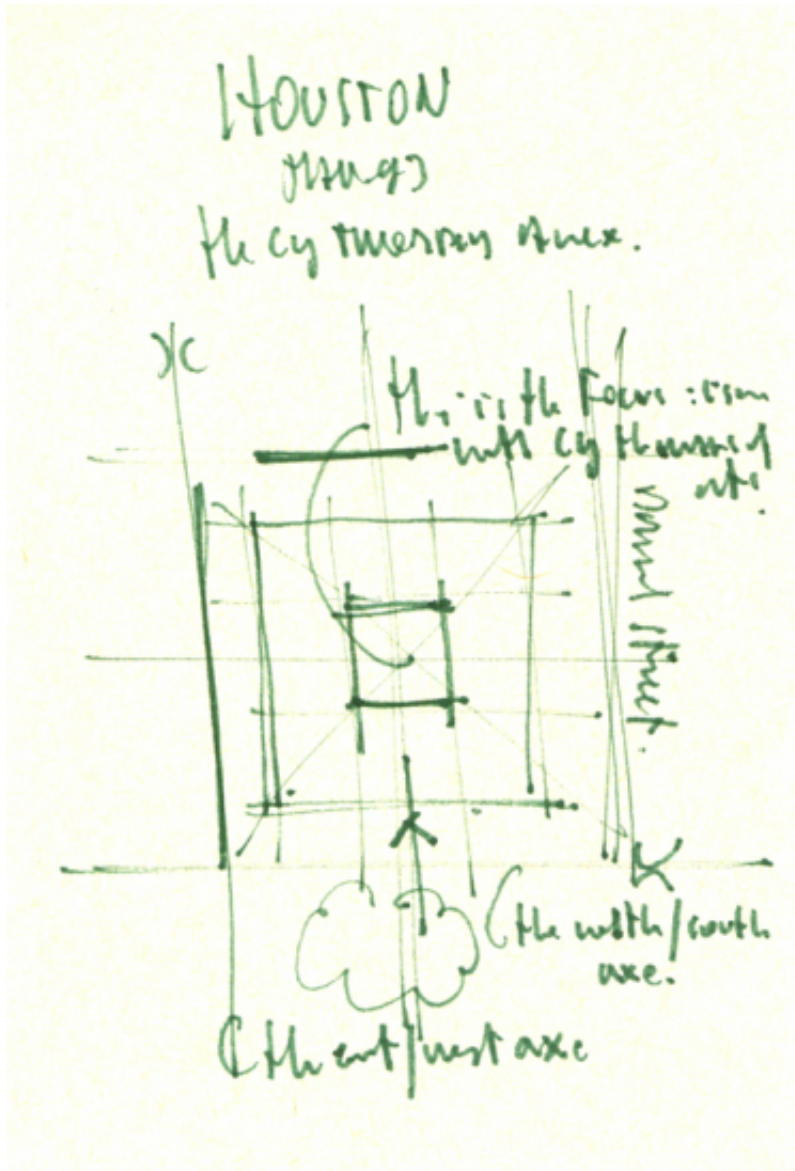 HOUSTON
the Cy Twombly Annex.
this is the focus : room
with Cy Twombly
street.
the north/south
axe.
the east/west axe